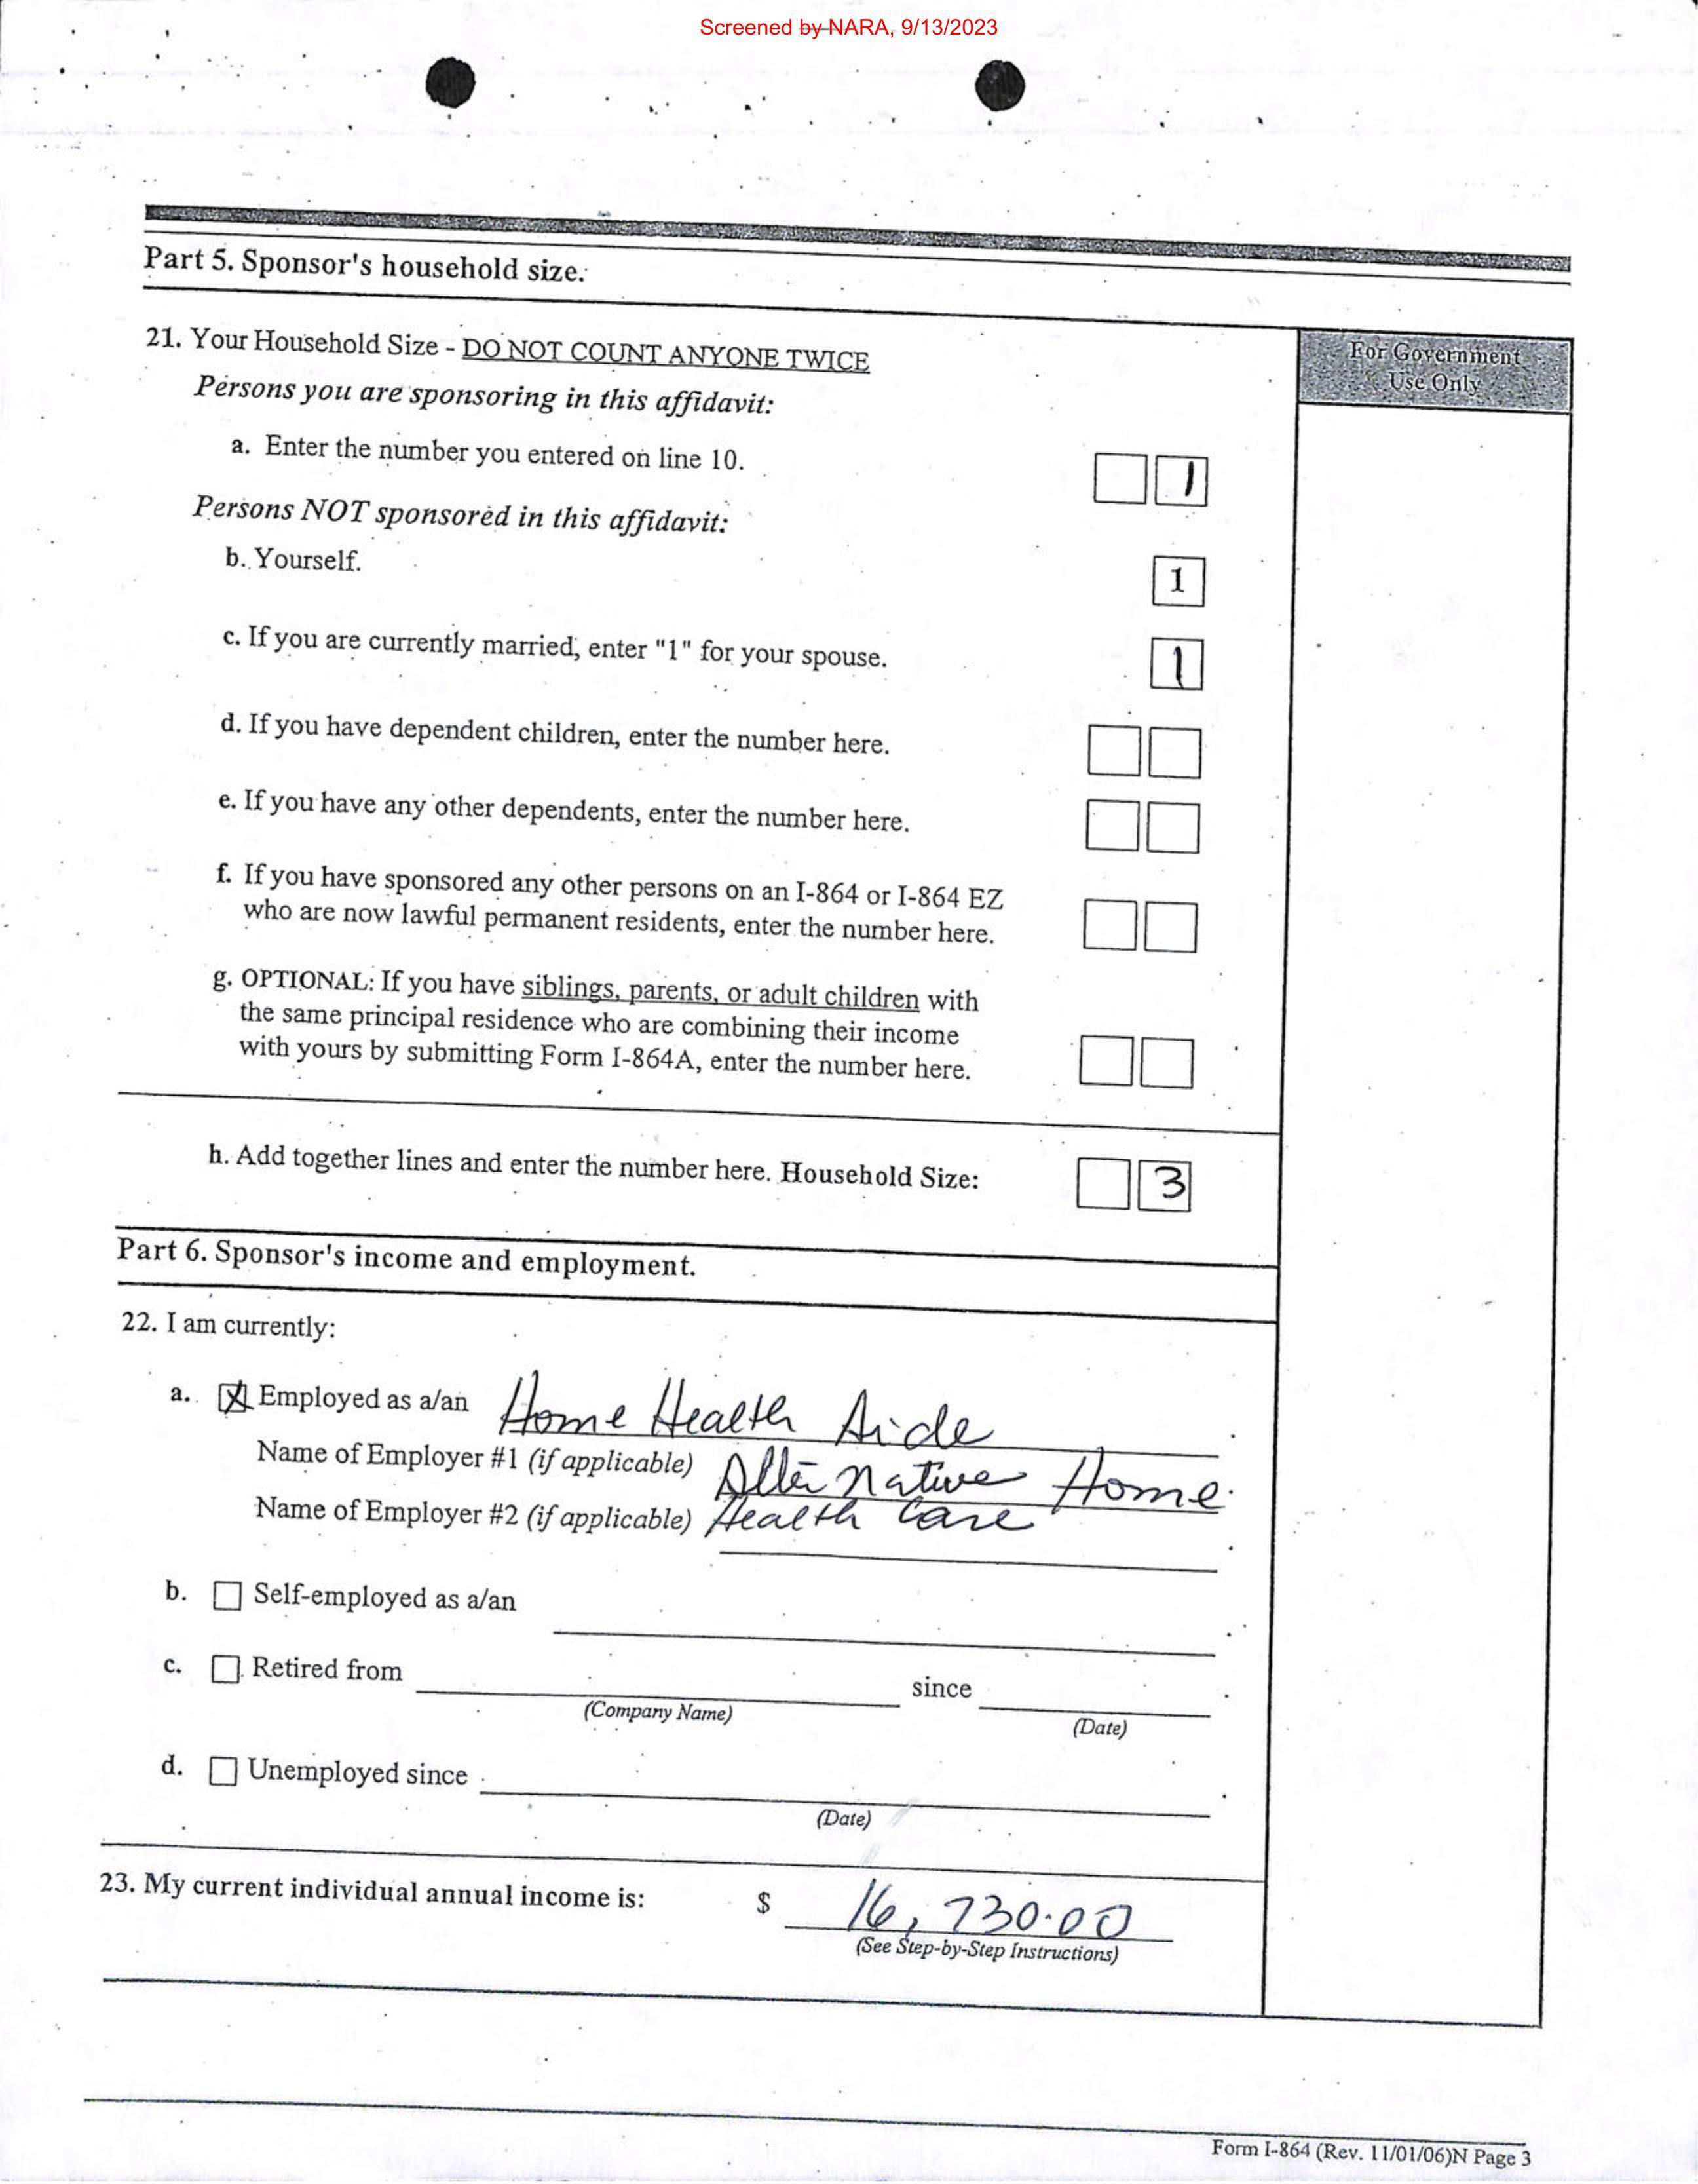 Screened by NARA, 9/13/2023
Part 5. Sponsor's household size.
For Government
Use Only
21. Your Household Size - DO NOT COUNT ANYONE TWICE
Persons you are sponsoring in this affidavit:
a. Enter the number you entered on line 10.
1
Persons NOT sponsored in this affidavit:
b. Yourself.
1
c. If you are currently married, enter "1" for your spouse.
1
d. If you have dependent children, enter the number here.
e. If you have any other dependents, enter the number here.
f. If you have sponsored any other persons on an I-864 or I-864 EZ
who are now lawful permanent residents, enter the number here.
g. OPTIONAL: If you have siblings, parents, or adult children with
the same principal residence who are combining their income
with yours by submitting Form I-864A, enter the number here.
h. Add together lines and enter the number here. Household Size:
3
Part 6. Sponsor's income and employment.
22. I am currently:
a. X Employed as a/an Home Health Aide
Name of Employer #1 (if applicable) Alternative Home
Name of Employer #2 (if applicable) Health Care
b. Self-employed as a/an
c. Retired from since
(Company Name) (Date)
d. Unemployed since
(Date)
23. My current individual annual income is: $ 16,730.00
(See Step-by-Step Instructions)
Form I-864 (Rev. 11/01/06)N Page 3